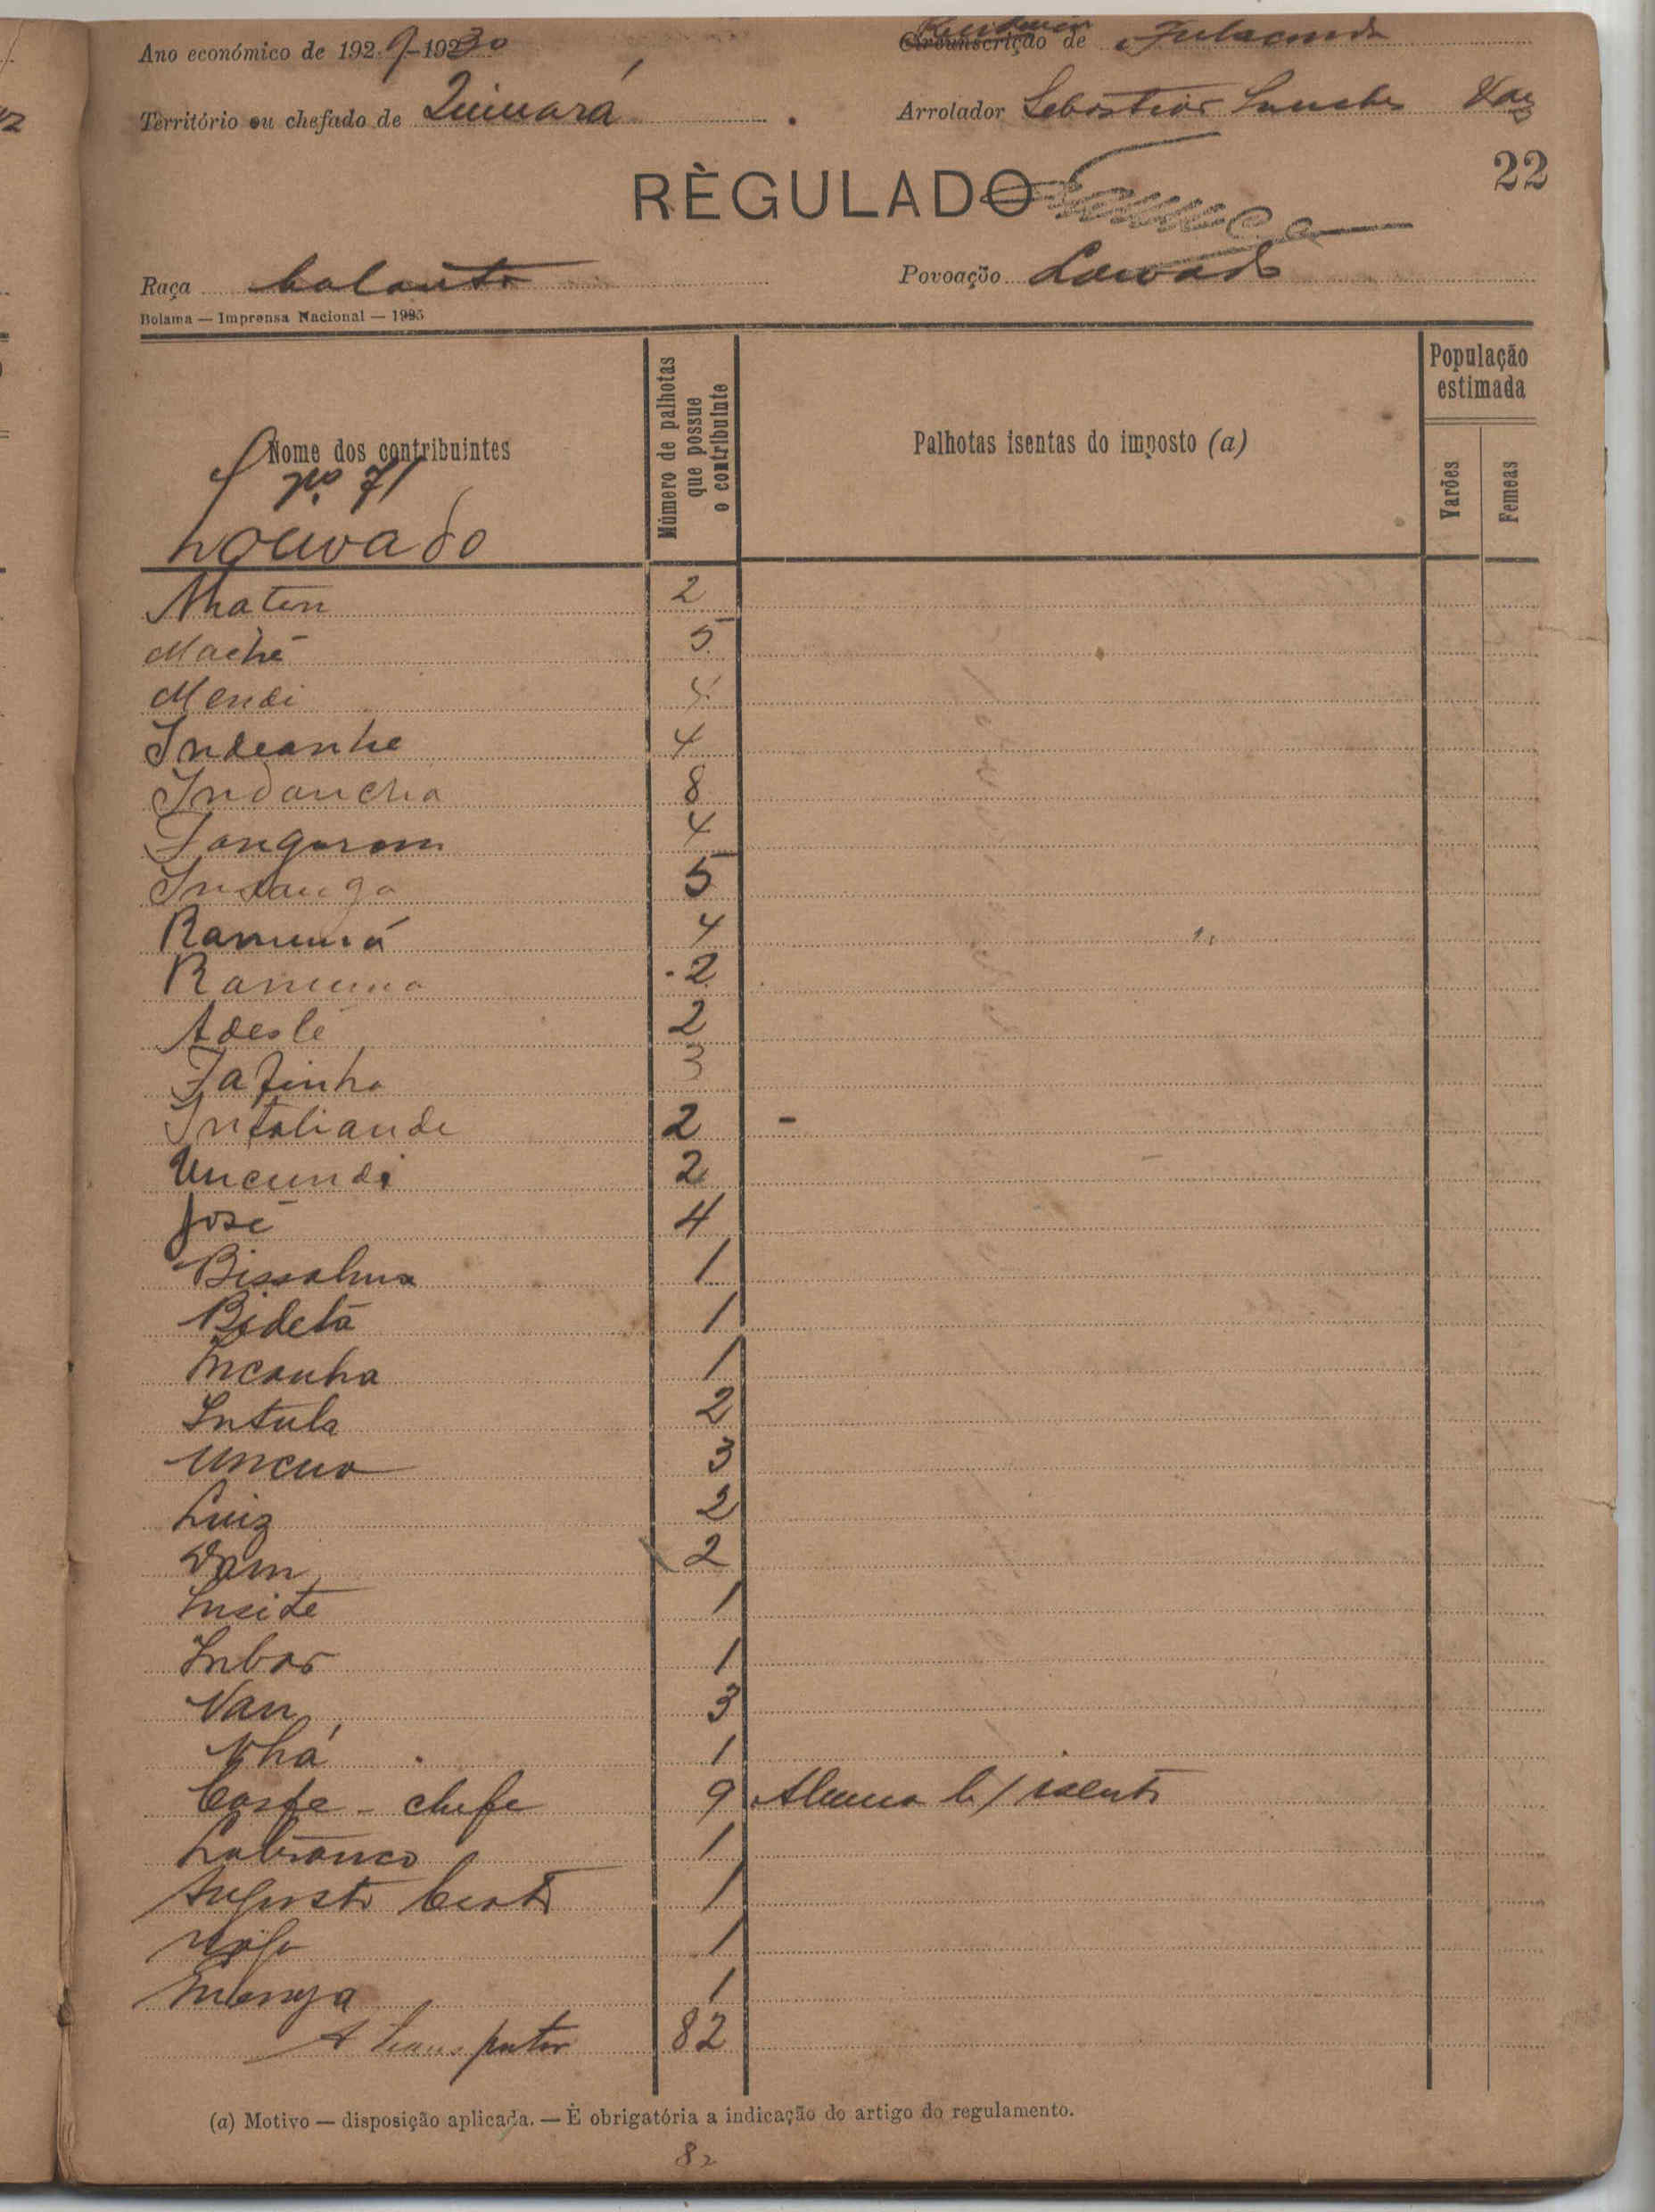 Ano económico de 1929-1930
Residencia de Fulacunda
Território ou chefado de Quinará
Arrolador Sebastião Sanches Vaz
22
RÈGULADO
Raça balanta
Povoação Louvado
Bolama — Imprensa Nacional — 1925
Nome dos contribuintes
nº 71
Louvado
Número de palhotas que possue o contribuinte
Palhotas isentas do imposto (a)
População estimada
Varões
Femeas
Nhaten 2
Maché 5
Mendi 4
Indeanhe 4
Indancha 8
Fangaram 4
Insanga 5
Ramumá 4
Ramuma 2
Adeslé 2
Fafinha 3
Intaliande 2
Uncunde 2
José 4
Bissalma 1
Bidetá 1
Incanha 1
Intula 2
Uncua 3
Luiz 2
Dam 2
Insite 1
Inbar 1
Van 3
Nhá 1
Coste - chefe 9
Labranco 1
Augusto 1
1
1
A transportar 82
(a) Motivo — disposição aplicada. — È obrigatória a indicação do artigo do regulamento.
82